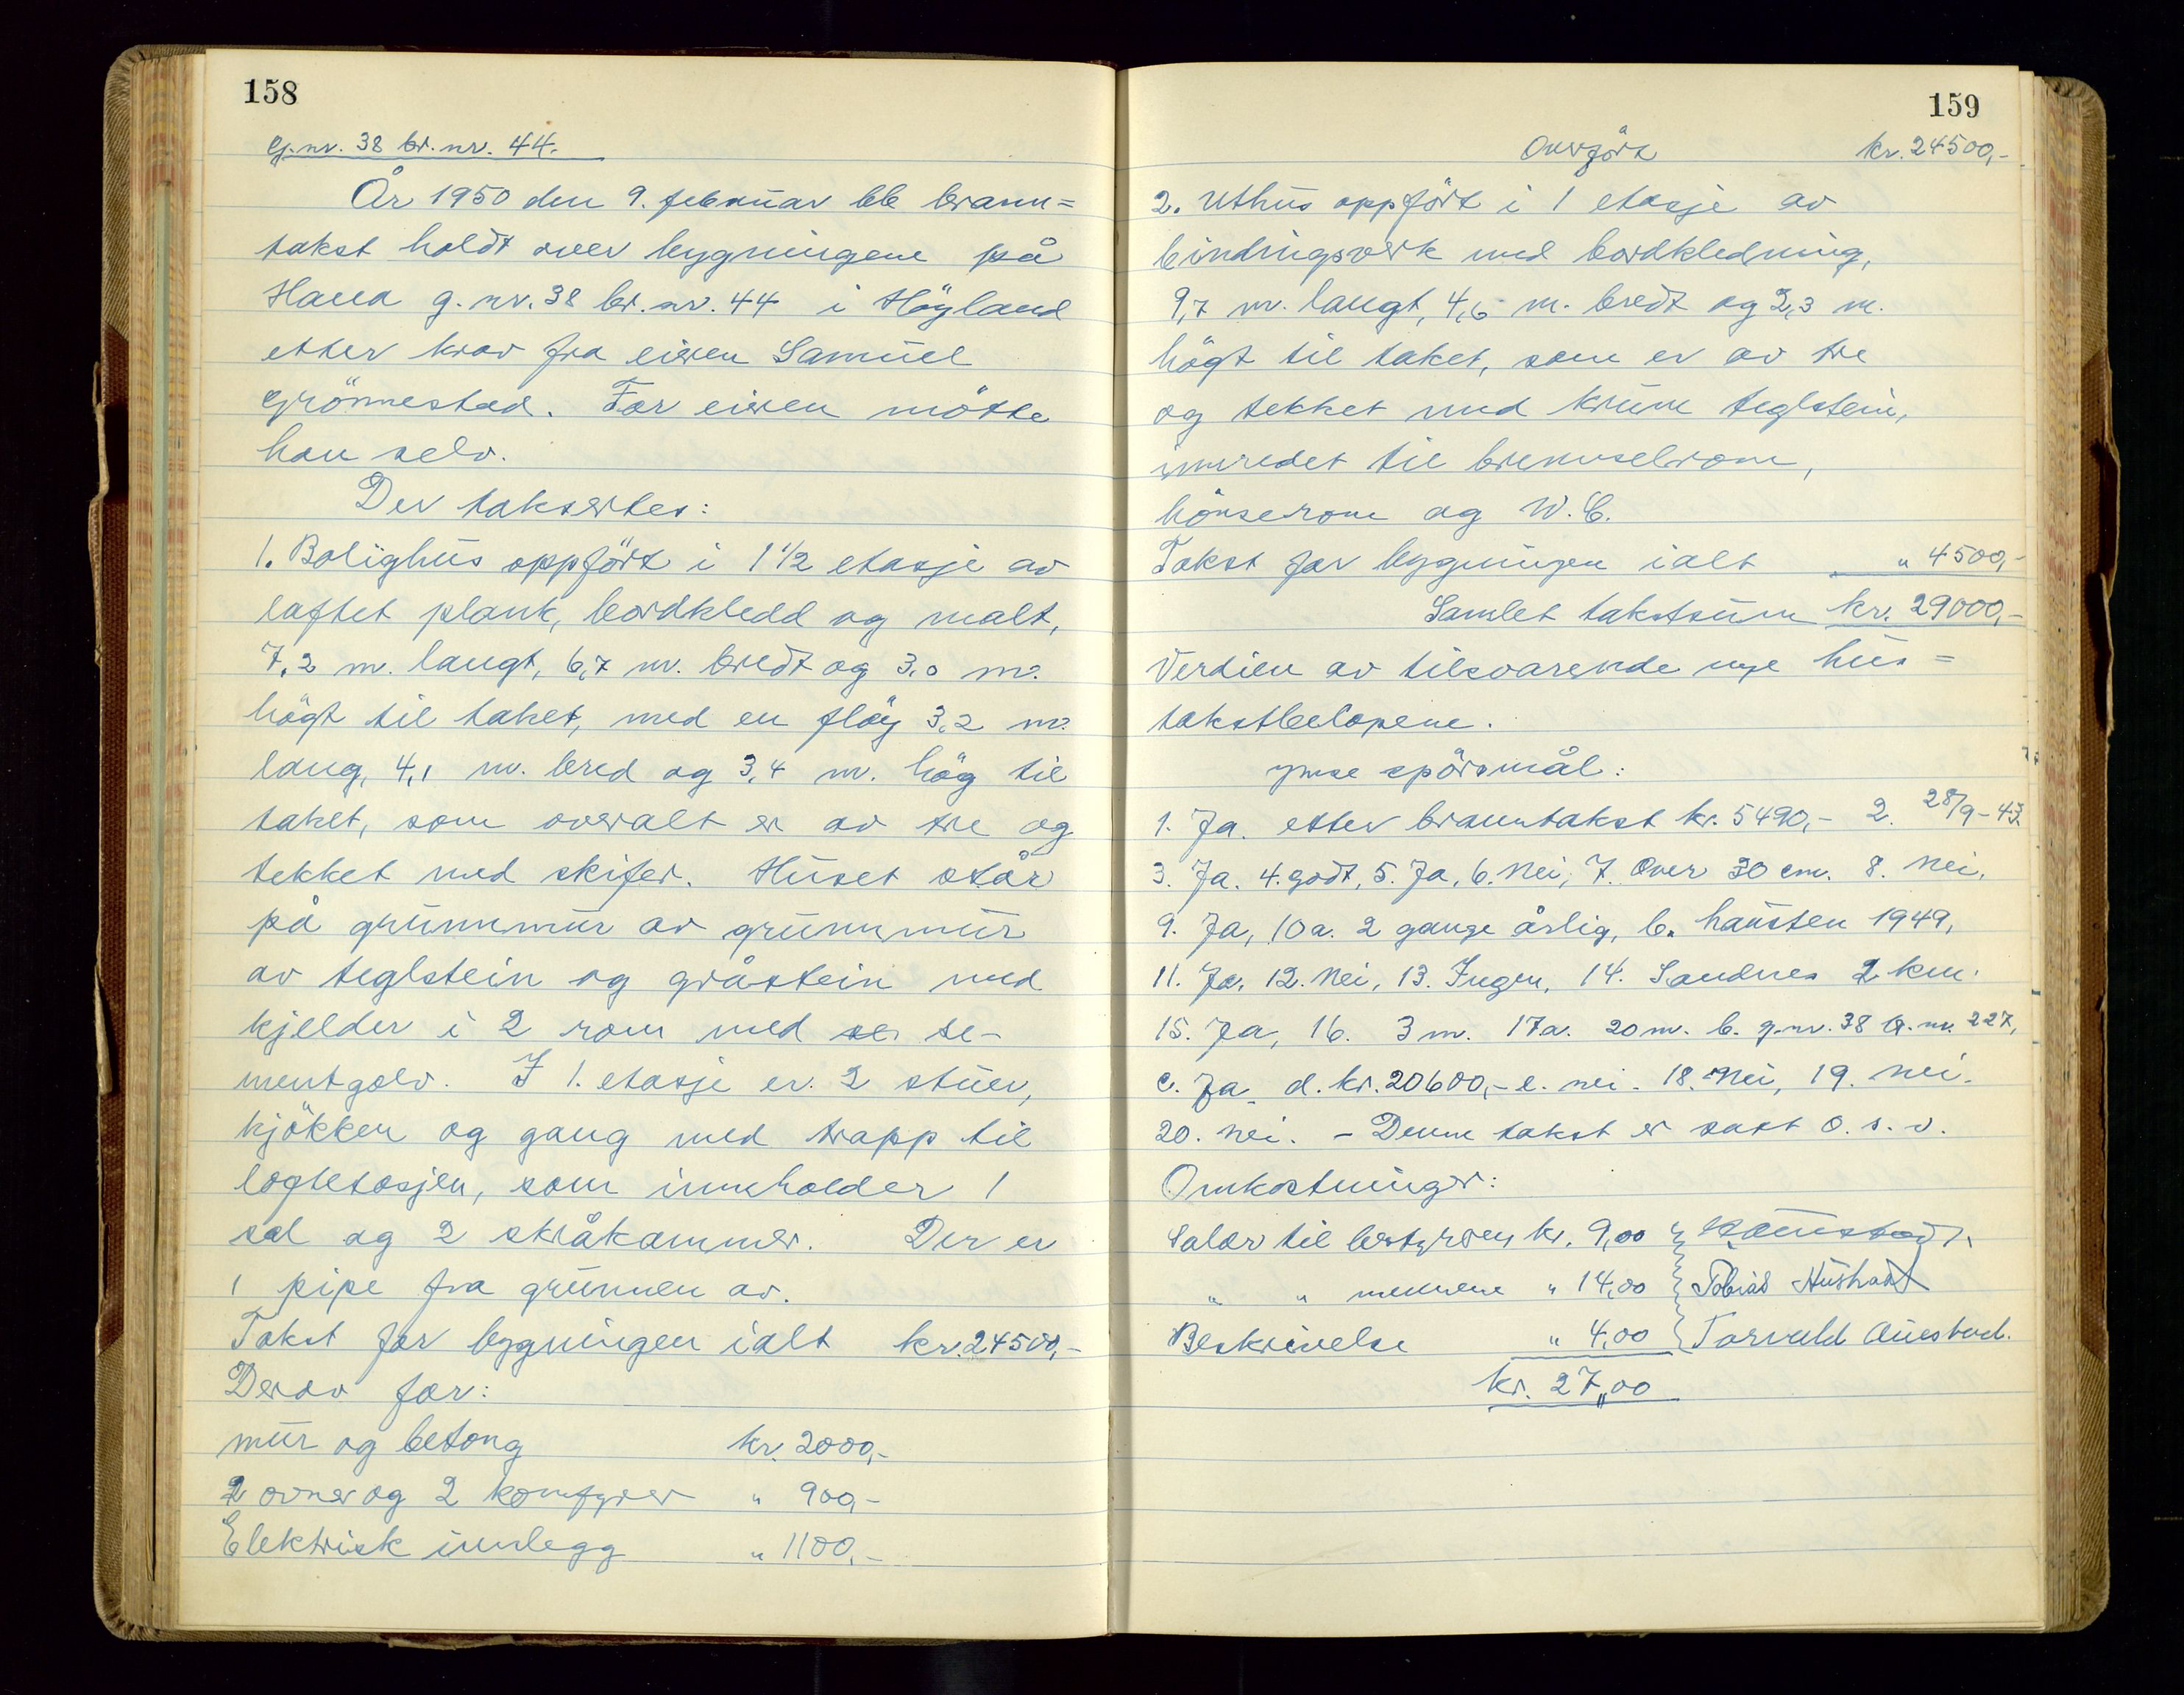 158
G.nr. 38 br.nr. 44.
År 1950 den 9. februar ble brann=
takst holdt over bygningene på
Hana g.nr. 38 br.nr. 44 i Høyland
etter krav fra eieren Samuel
Grönnestad. For eieren mötte
han selv.
Der taksertes:
1. Bolighus oppfört i 1 1/2 etasje av
laftet plank, bordkledd og malt,
7,2 m. langt, 6,7 m. bredt og 3,0 m.
högt til taket, med en flöy 3,2 m.
lang, 4,1 m. bred og 3,4 m. hög til
taket, som overalt er av tre og
tekket med skifer. Huset står
på grunnmur av grunnmur
av teglstein og gråstein med
kjelder i 2 rom med se-
mentgolv. I 1. etasje er 2 stuer,
kjökken og gang med trapp til
loftetasjen, som inneholder 1
sal og 2 skråkammer. Der er
1 pipe fra grunnen av.
Takst for bygningen ialt kr. 24500,-
Derav for:
mur og betong kr. 2000,-
2 ovner og 2 komfyrer " 900,-
Elektrisk innlegg " 1100,-
159
Overfört kr. 24500,-
2. Uthus oppfört i 1 etasje av
bindingsverk med bordkledning,
9,7 m. langt, 4,6 m. bredt og 2,3 m.
högt til taket, som er av tre
og tekket med krum teglstein,
innredet til brenselrom,
hönserom og W.C.
Takst for bygningen ialt " 4500,-
Samlet takstsum kr. 29000,-
Verdien av tilsvarende nye hus =
takstbelöpene.
Ymse spörsmål:
1. Ja. etter branntakst kr. 5490,- 2. 28/9-43.
3. Ja. 4. godt, 5. Ja, 6. Nei, 7. Over 30 cm. 8. Nei,
9. Ja, 10a. 2 gange årlig, b. hausten 1949,
11. Ja, 12. Nei, 13. Ingen, 14. Sandnes 2 km.
15. Ja, 16. 3 m. 17a. 20 m. b. g.nr. 38 br.nr. 227,
c. Ja, d. kr. 20600,- e. nei. 18. Nei, 19. nei.
20. nei. - Denne takst er satt o.s.v.
Omkostninger:
Salær til bestyreren kr. 9,00
" " mennene " 14,00 Tobias Husbad
Beskrivelse " 4,00 Torvald Auestad.
kr. 27,00